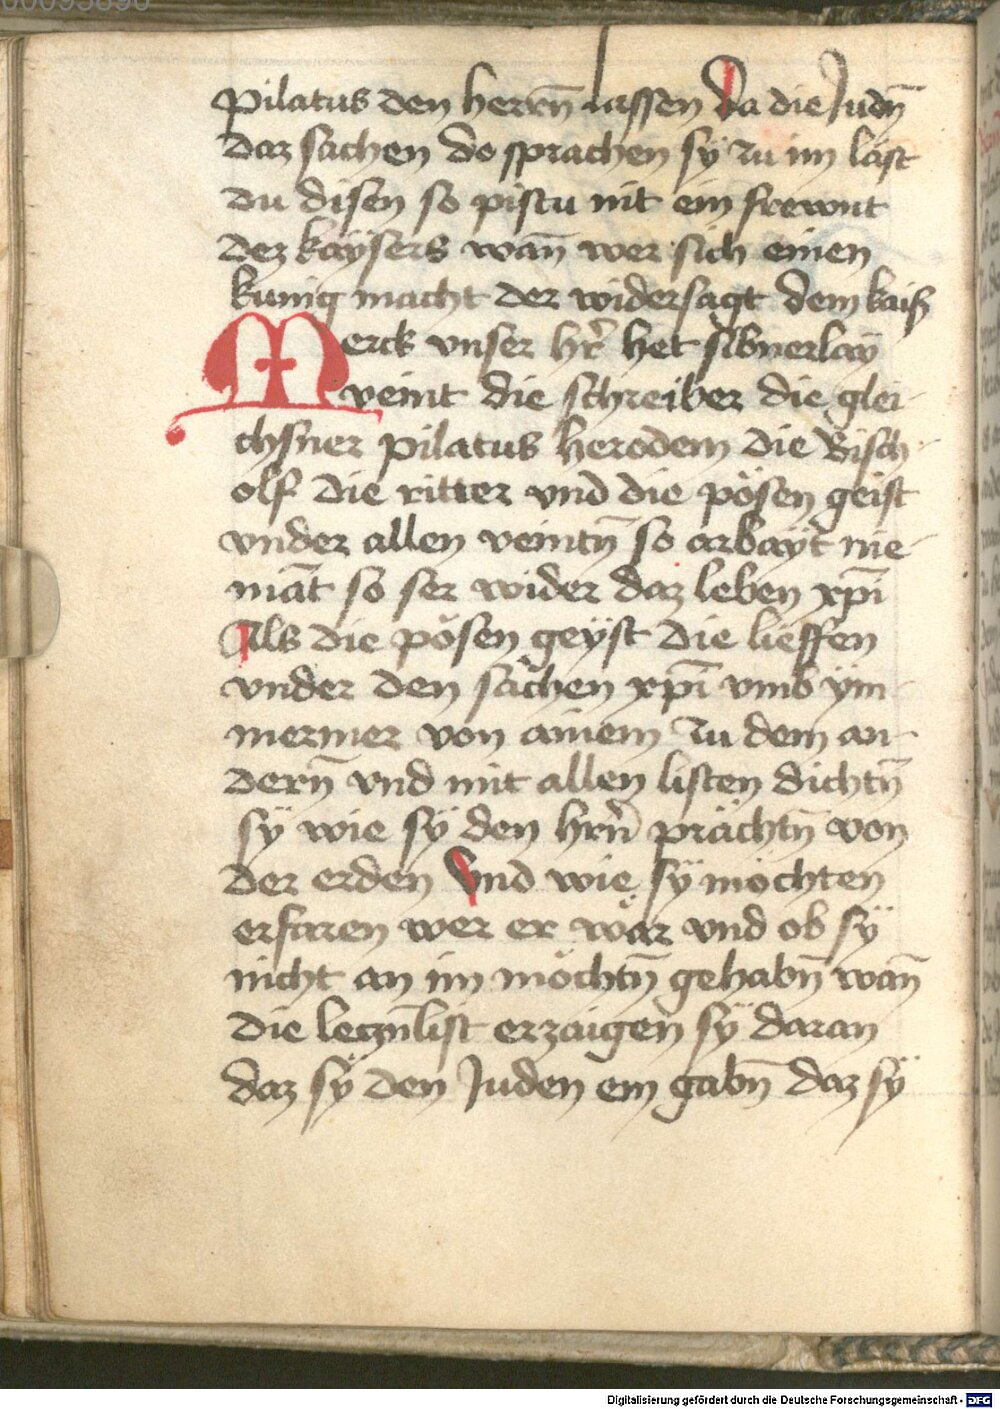 00095896
Pilatus den herrn̄ lassen Da die Judn̄
daz sachen do sprachen sÿ zu im läst
du disen so pistu nit ein frewnt
dez kaÿsers wan̄ wer sich einen
kunig macht der widersagt dem kaiß
Merck vnser hr̄ het sibnerlaÿ
veint die schreiber die glei-
chsner pilatus herodem die Bisch-
olf die ritter vnd die pösen geist
vnder allen veintn̄ so arbayt̄ nie-
māt so ser wider daz leben xp̄i
Als die pösen geÿst die lieffen
vnder den sachen xp̄i vmb ÿm-
mermer von ainem zu dem an-
dern̄ vnd mit allen listen dichtn̄
sÿ wie sÿ den hrn̄ prächtn̄ von
der erden Vnd wie sÿ möchten
erfaren wer er wär vnd ob sÿ
nicht an im möchtn̄ gehabn̄ wan̄
die leczn̄ list erzaigen sÿ daran
daz sÿ den Juden em gabn̄ daz sÿ
Digitalisierung gefördert durch die Deutsche Forschungsgemeinschaft - DFG